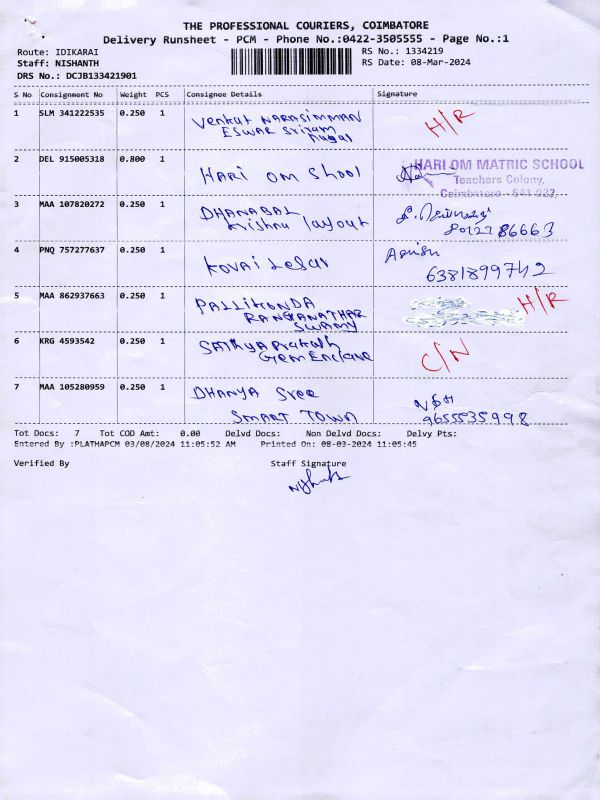 THE PROFESSIONAL COURIERS, COIMBATORE
Delivery Runsheet - PCM - Phone No.:0422-3505555 - Page No.:1
Route: IDIKARAI
RS No.: 1334219
Staff: NISHANTH
RS Date: 08-Mar-2024
DRS No.: DCJB133421901
S No Consignment No Weight PCS Consignee Details Signature
1 SLM 341222535 0.250 1 Venkat NARASIMMAN
ESWAR Sriram
Nagar
H/R
2 DEL 915005318 0.800 1 HARI OM Shool
HARI OM MATRIC SCHOOL
Teachers Colony,
Coimbatore - 641 022,
3 MAA 107820272 0.250 1 DHANABAL
Krishna layout
86663
4 PNQ 757277637 0.250 1 KOVAI
6381899742
5 MAA 862937663 0.250 1 PALLIKONDA
RANGANATHAR
SWAMY
H/R
6 KRG 4593542 0.250 1 SATHYAPrakash
Gem Enclave
C/N
7 MAA 105280959 0.250 1 DHANYA Sree
SMART TOWN
9655535998
Tot Docs: 7 Tot COD Amt: 0.00 Delvd Docs: Non Delvd Docs: Delvy Pts:
Entered By :PLATHAPCM 03/08/2024 11:05:52 AM Printed On: 08-03-2024 11:05:45
Verified By Staff Signature